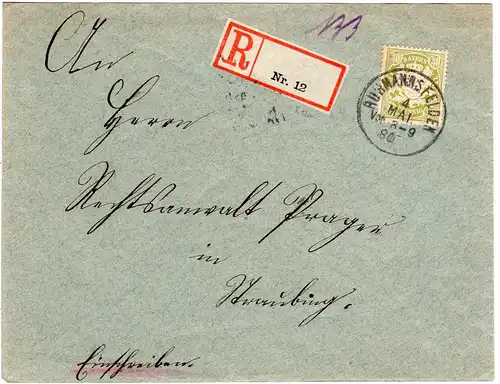 133
R
Nr. 12
BAYERN
RUHMANNSFELDEN
4
MAI
Vm. 8-9
An
Herrn
Rechtsanwalt Prager
in
Straubing.
Einschreiben.